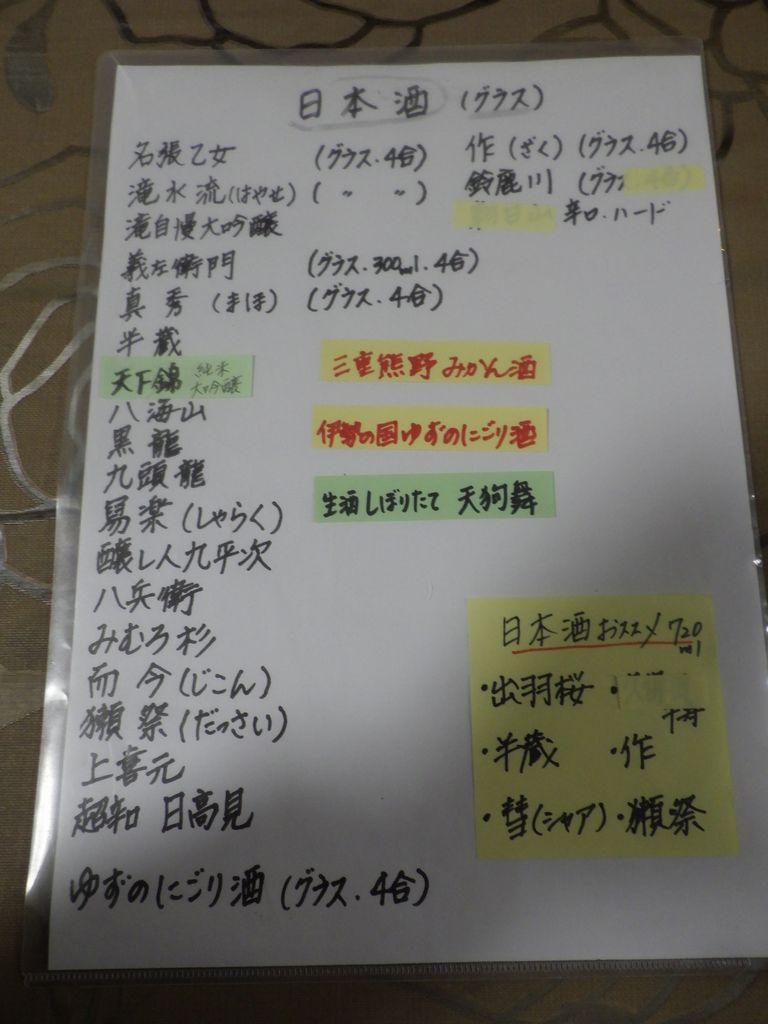 日本酒 (グラス)
名張乙女 (グラス.4合)
滝水流(はやせ) ( 〃 〃 )
滝自慢大吟醸
義左衛門 (グラス.300ml.4合)
真秀 (まほ) (グラス.4合)
半蔵
天下錦 純米大吟醸
八海山
黒龍
九頭龍
易楽(しゃらく)
醸し人九平次
八兵衛
みむろ杉
而今(じこん)
獺祭(だっさい)
上喜元
超辛和 日高見
ゆずのにごり酒 (グラス.4合)
作 (ざく) (グラス.4合)
鈴鹿川 (グラ 4合)
辛口.ハード
三重熊野みかん酒
伊勢の国ゆずのにごり酒
生酒しぼりたて 天狗舞
日本酒おススメ 720ml
・出羽桜 ・
・半蔵 ・作
・彗(シャア) ・獺祭